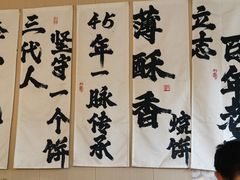 三代人
坚守一个饼
45年一脉传承
薄酥香
烧饼
立志
百年老